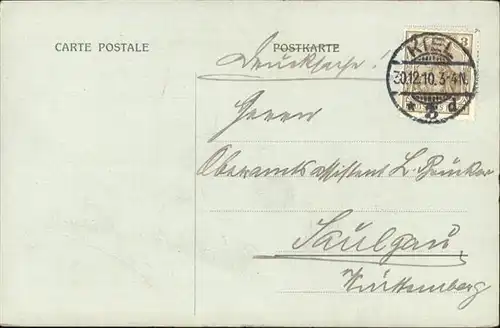 CARTE POSTALE
POSTKARTE
Drucksache!
3
KIEL
30.12.10. 3-4N.
* 3 d
Herrn
Oberamtsassistent L. Brucker
Saulgau,
Württemberg